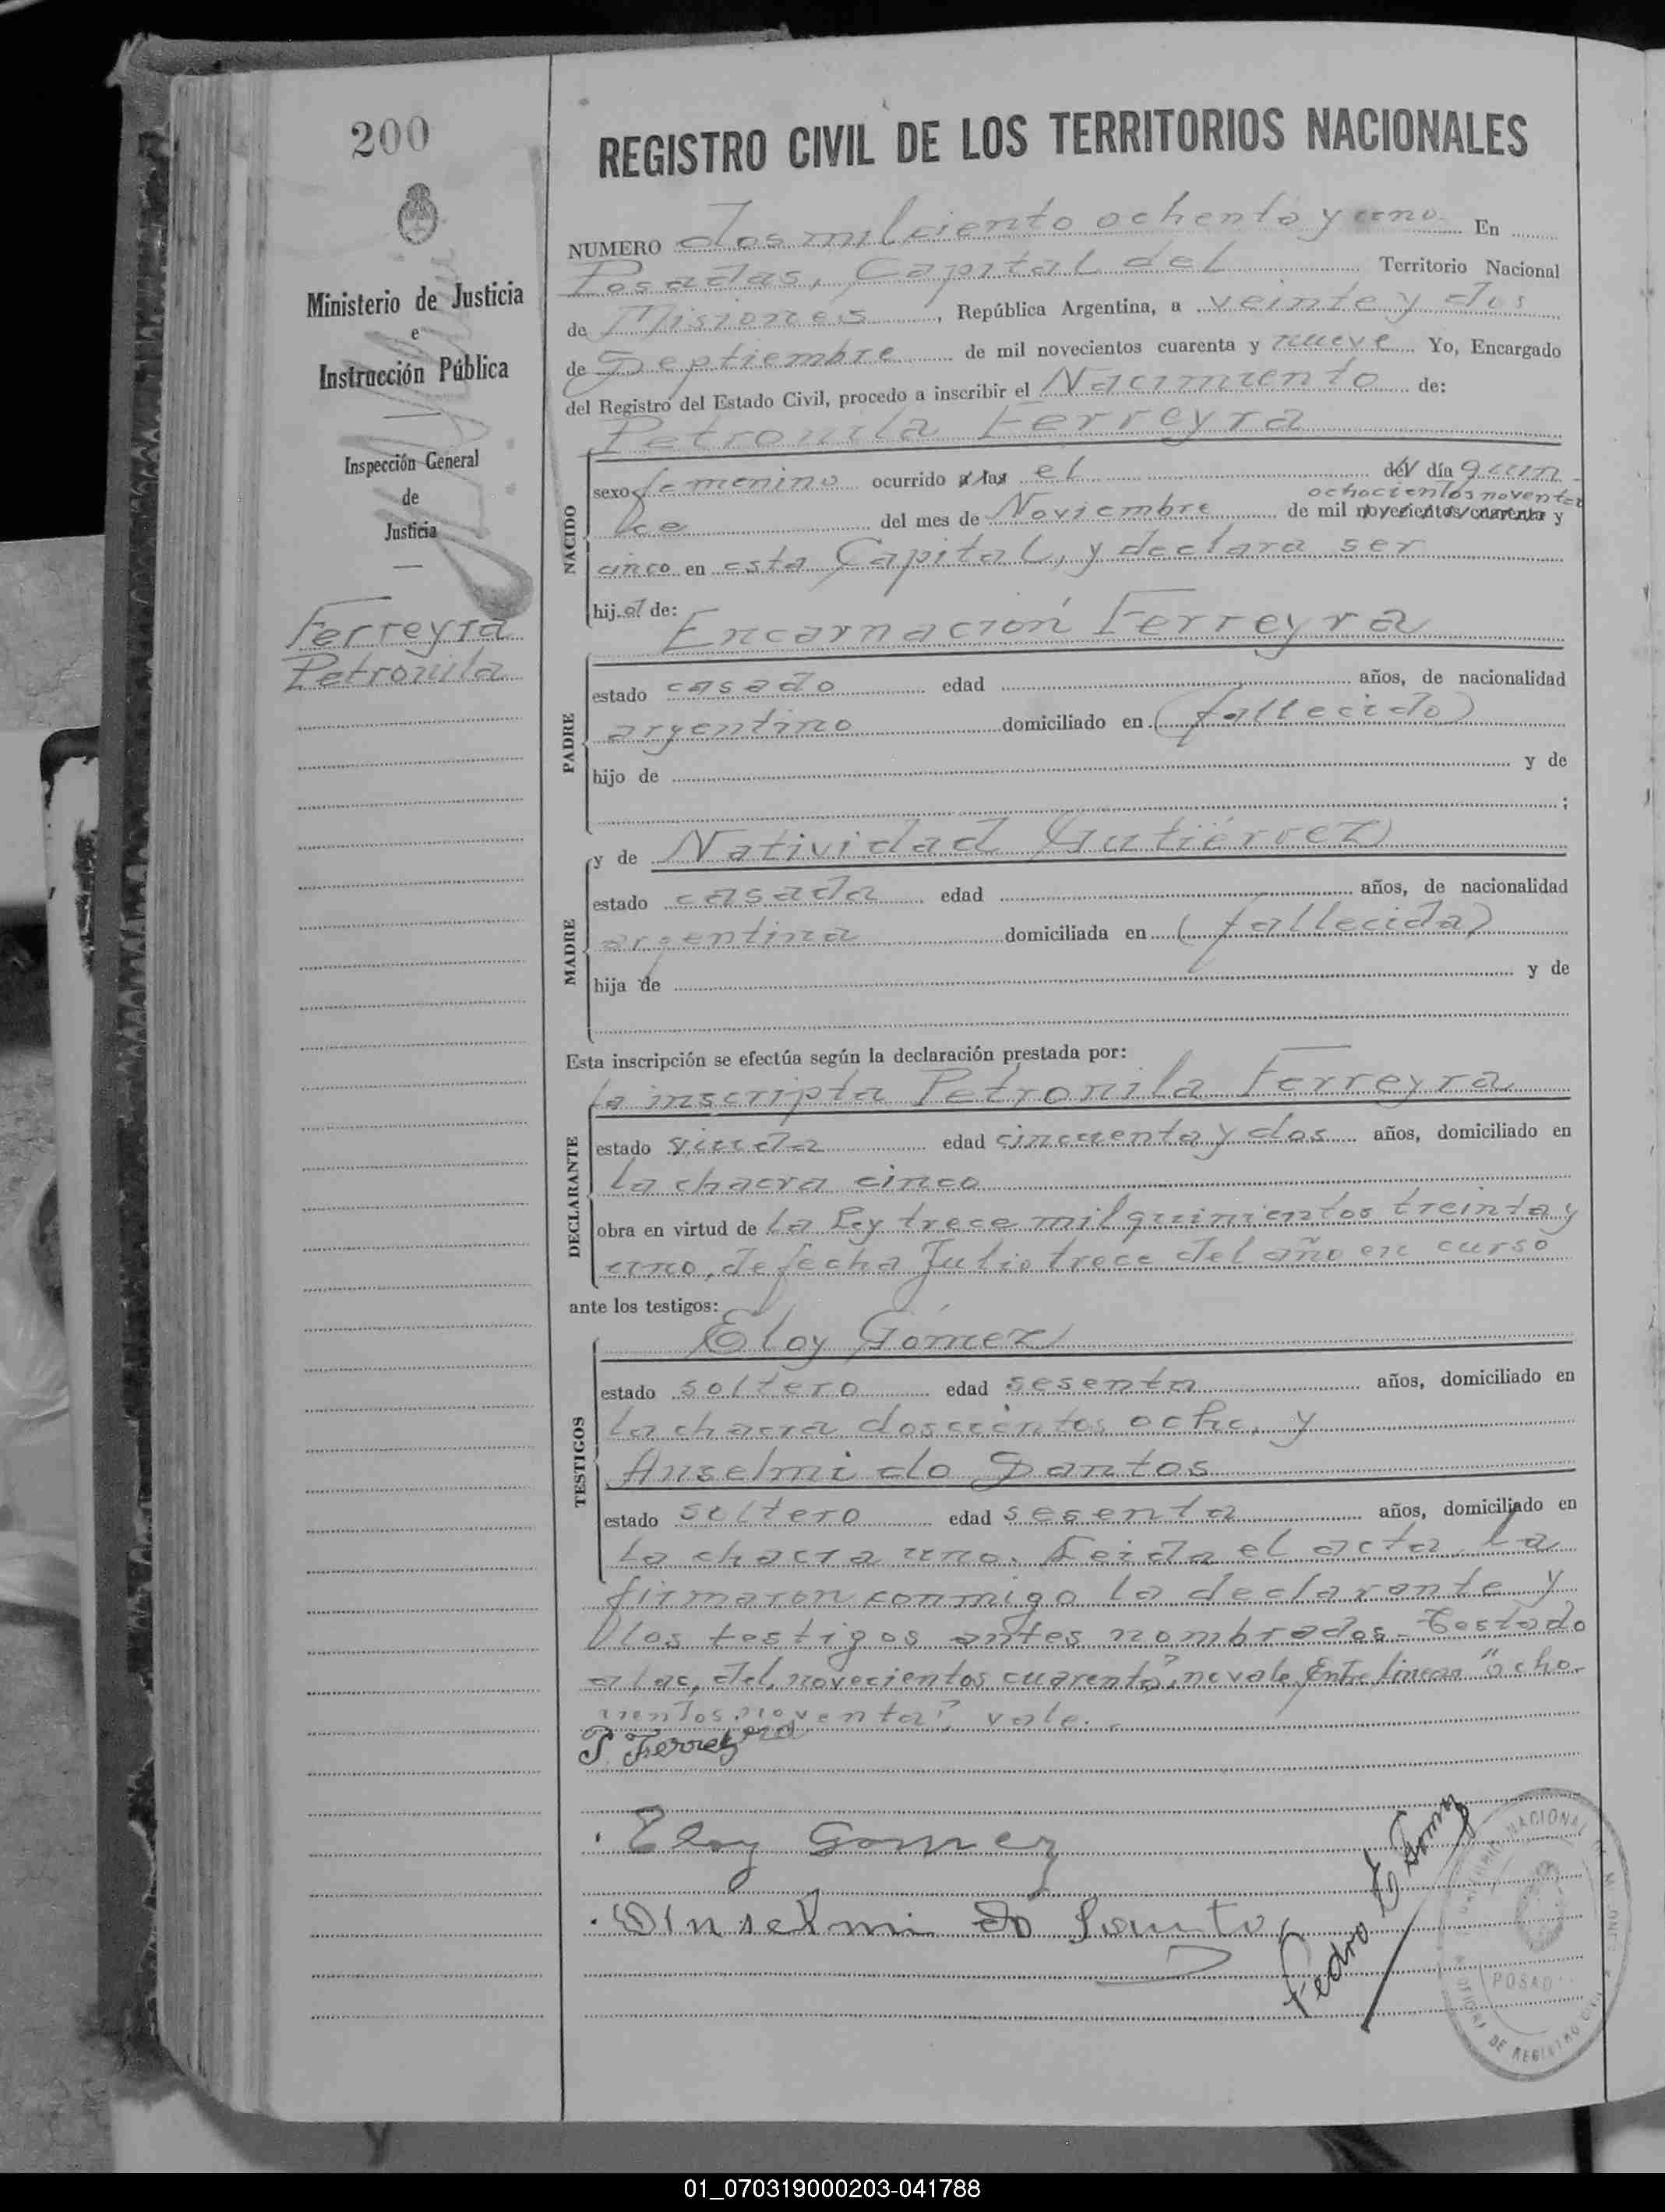 200
Ministerio de Justicia
e
Instrucción Pública
Inspección General
de
Justicia
Ferreyra
Petronila
REGISTRO CIVIL DE LOS TERRITORIOS NACIONALES
NUMERO dos mil ciento ochenta y uno En
Posadas, Capital del Territorio Nacional
de Misiones, República Argentina, a veinte y dos
de Septiembre de mil novecientos cuarenta y nueve Yo, Encargado
del Registro del Estado Civil, procedo a inscribir el Nacimiento de:
Petronila Ferreyra
NACIDO
sexo femenino ocurrido a las el del día quin
ochocientos noventa
ce del mes de Noviembre de mil novecientos cuarenta y
cinco en esta Capital, y declara ser
hij.a de:
Encarnación Ferreyra
PADRE
estado casado edad años, de nacionalidad
argentino domiciliado en (fallecido)
hijo de y de
;
y de Natividad Gutiérrez
MADRE
estado casada edad años, de nacionalidad
argentina domiciliada en (fallecida)
hija de y de
Esta inscripción se efectúa según la declaración prestada por:
la inscripta Petronila Ferreyra
DECLARANTE
estado viuda edad cincuenta y dos años, domiciliado en
la chacra cinco
obra en virtud de la Ley trece mil quinientos treinta y
uno, de fecha Julio trece del año en curso
ante los testigos:
Eloy Gómez
TESTIGOS
estado soltero edad sesenta años, domiciliado en
la chacra doscientos ocho, y
Anselmi do Santos
estado soltero edad sesenta años, domiciliado en
la chacra uno. Leida el acta la
firmaron conmigo la declarante y
los testigos antes nombrados - Testado
a las, del, novecientos cuarenta", no vale. Entre lineas "ocho
cientos noventa", vale.
P. Ferreyra
Eloy Gomez
Anselmi do Santo
Pedro E
NACIONAL
POSAD
DE REGISTRO
01_070319000203-041788